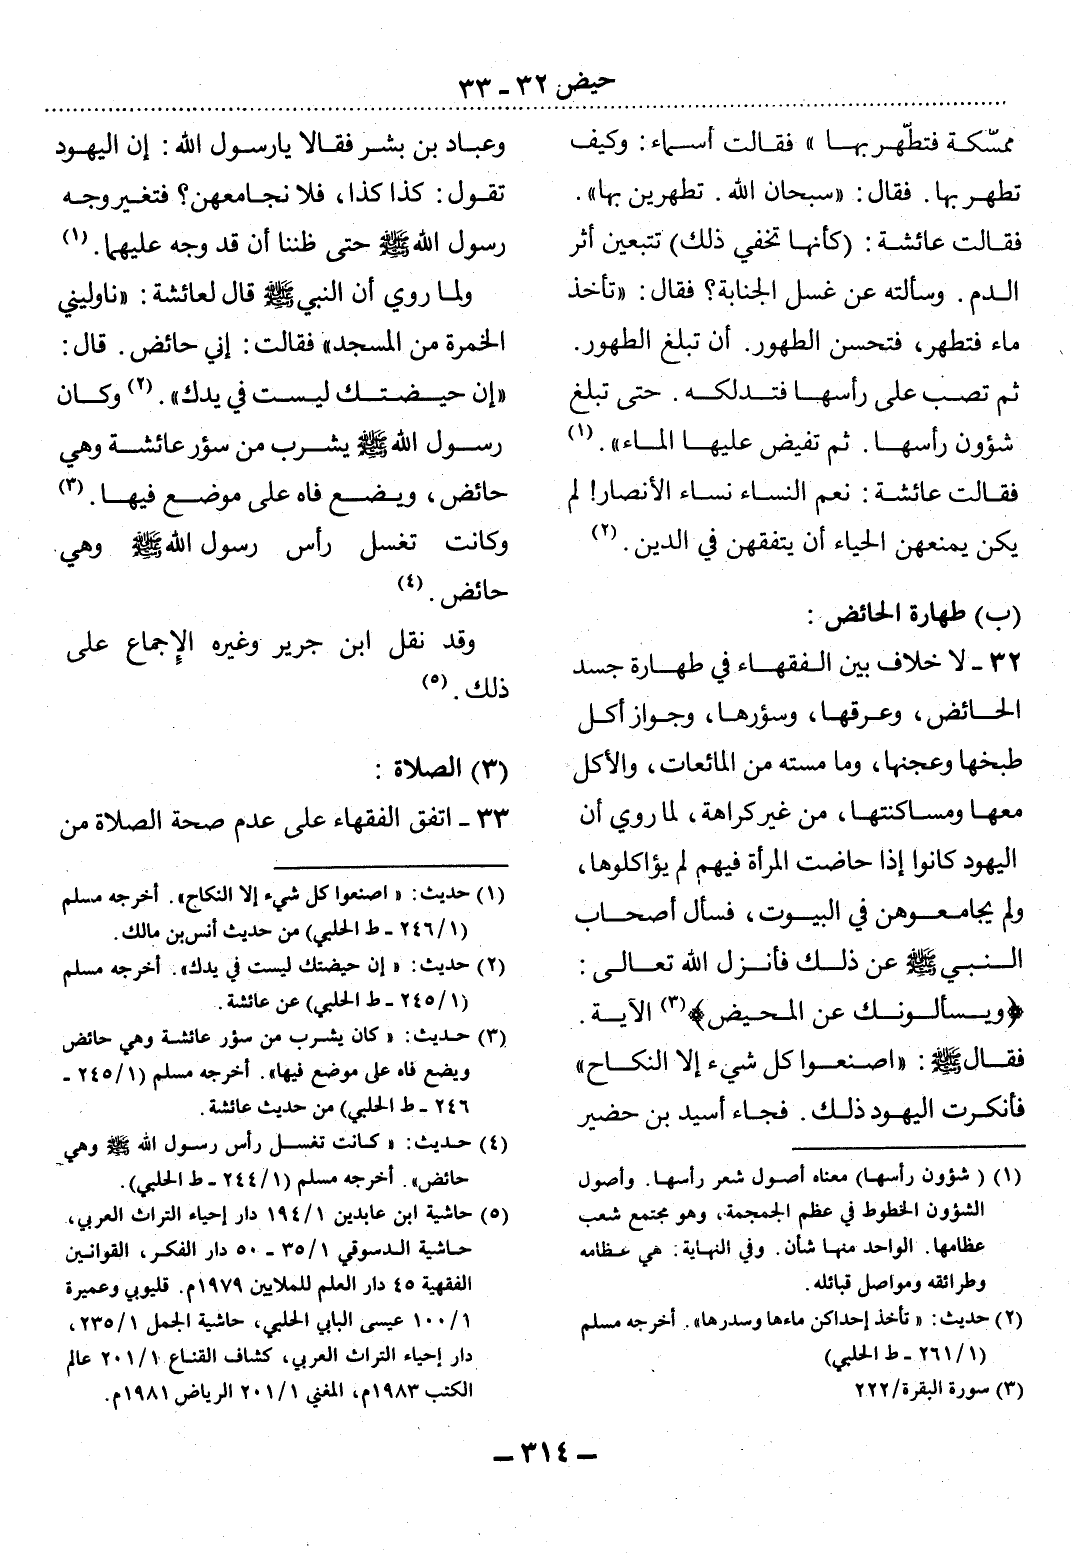 حيض ٣٢ - ٣٣
ممسّكة فتطّهر بها » فقالت أسماء : وكيف
تطهر بها . فقال : «سبحان الله . تطهرين بها» .
فقالت عائشة : (كأنها تخفي ذلك) تتبعين أثر
الدم . وسألته عن غسل الجنابة؟ فقال : «تأخذ
ماء فتطهر، فتحسن الطهور. أن تبلغ الطهور.
ثم تصب على رأسها فتدلكه . حتى تبلغ
شؤون رأسها . ثم تفيض عليها الماء» . (١)
فقالت عائشة : نعم النساء نساء الأنصار! لم
يكن يمنعهن الحياء أن يتفقهن في الدين . (٢)
(ب) طهارة الحائض :
٣٢ - لا خلاف بين الفقهاء في طهارة جسد
الحائض ، وعرقها ، وسؤرها ، وجواز أكل
طبخها وعجنها ، وما مسته من المائعات ، والأكل
معها ومساكنتها ، من غير كراهة ، لما روي أن
اليهود كانوا إذا حاضت المرأة فيهم لم يؤاكلوها ،
ولم يجامعوهن في البيوت ، فسأل أصحاب
النبي ﷺ عن ذلك فأنزل الله تعالى :
﴿ويسألونك عن المحيض﴾(٣) الآية .
فقال ﷺ : «اصنعوا كل شيء إلا النكاح»
فأنكرت اليهود ذلك . فجاء أسيد بن حضير
(١) ( شؤون رأسها) معناه أصول شعر رأسها . وأصول
الشؤون الخطوط في عظم الجمجمة، وهو مجتمع شعب
عظامها. الواحد منها شأن. وفي النهاية: هي عظامه
وطرائقه ومواصل قبائله.
(٢) حديث : « تأخذ إحداكن ماءها وسدرها» . أخرجه مسلم
(٢٦١/١ - ط الحلبي)
(٣) سورة البقرة/ ٢٢٢
وعباد بن بشر فقالا يارسول الله : إن اليهود
تقول : كذا كذا ، فلا نجامعهن؟ فتغير وجه
رسول الله ﷺ حتى ظننا أن قد وجد عليهما . (١)
ولما روي أن النبي ﷺ قال لعائشة : «ناوليني
الخمرة من المسجد» فقالت : إني حائض . قال :
«إن حيضتك ليست في يدك» . (٢) وكان
رسول الله ﷺ يشرب من سؤر عائشة وهي
حائض ، ويضع فاه على موضع فيها . (٣)
وكانت تغسل رأس رسول الله ﷺ وهي
حائض . (٤)
وقد نقل ابن جرير وغيره الإجماع على
ذلك . (٥)
(٣) الصلاة :
٣٣ - اتفق الفقهاء على عدم صحة الصلاة من
(١) حديث : « اصنعوا كل شيء إلا النكاح» . أخرجه مسلم
(٢٤٦/١ - ط الحلبي) من حديث أنس بن مالك .
(٢) حديث : « إن حيضتك ليست في يدك» . أخرجه مسلم
(٢٤٥/١ - ط الحلبي) عن عائشة .
(٣) حديث : « كان يشرب من سؤر عائشة وهي حائض
ويضع فاه على موضع فيها» . أخرجه مسلم (٢٤٥/١ -
٢٤٦ - ط الحلبي) من حديث عائشة .
(٤) حديث : « كانت تغسل رأس رسول الله ﷺ وهي
حائض» . أخرجه مسلم (٢٤٤/١ - ط الحلبي) .
(٥) حاشية ابن عابدين ١٩٤/١ دار إحياء التراث العربي ،
حاشية الدسوقي ٣٥/١ - ٥٠ دار الفكر ، القوانين
الفقهية ٤٥ دار العلم للملايين ١٩٧٩م . قليوبي وعميرة
١٠٠/١ عيسى البابي الحلبي ، حاشية الجمل ٢٣٥/١ ،
دار إحياء التراث العربي ، كشاف القناع ٢٠١/١ عالم
الكتب ١٩٨٣م ، المغني ٢٠١/١ الرياض ١٩٨١م .
- ٣١٤ -